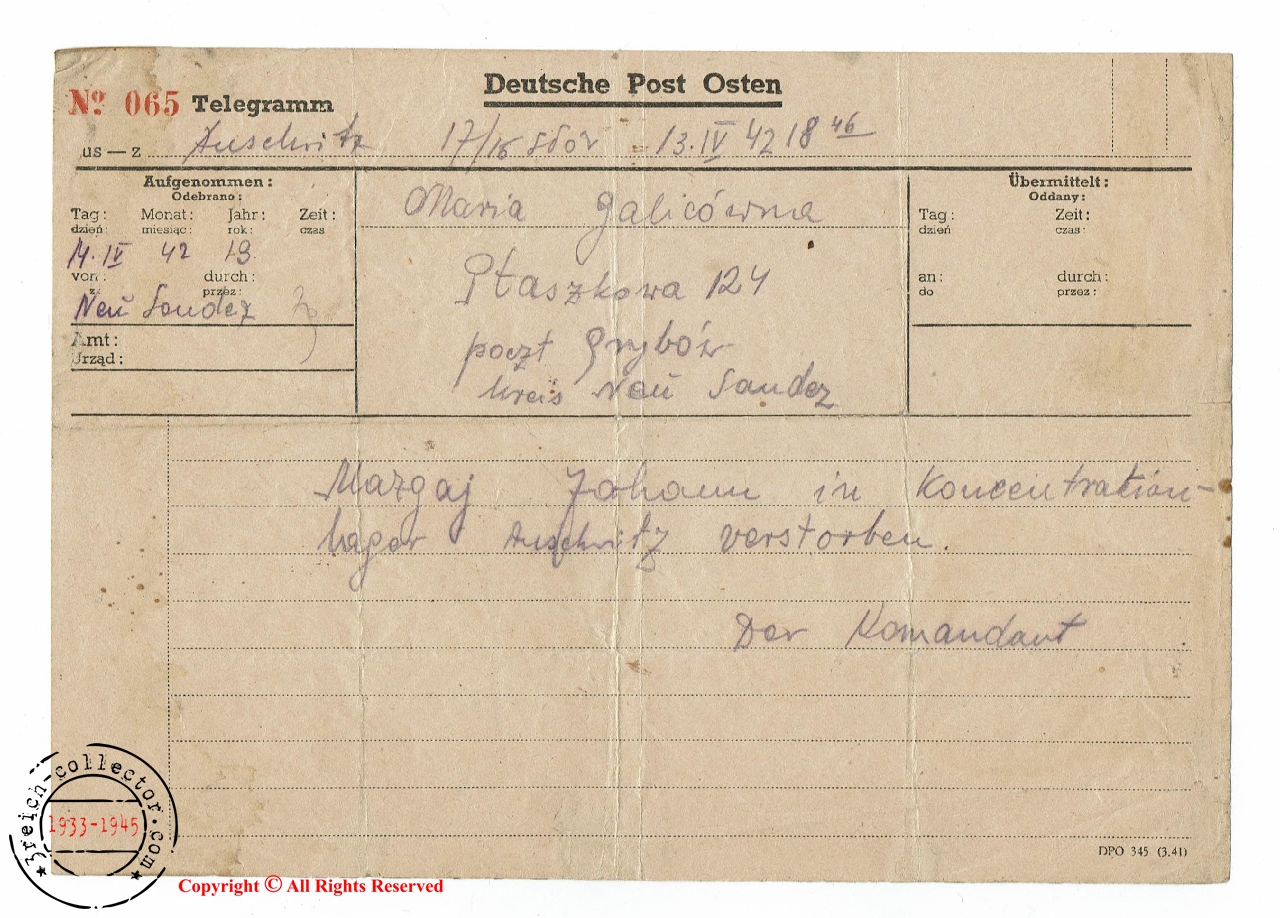 Deutsche Post Osten
Nº 065 Telegramm
us — z Auschwitz 17/16 słów 13.IV 42 18 46
Aufgenommen:
Odebrano:
Tag: Monat: Jahr: Zeit:
dzień: miesiąc: rok: czas
14.IV 42 19
von: durch:
z: przez:
Neŭ Sandez
Amt:
Urząd:
Maria Galicówna
Ptaszkowa 124
poczt Grybów
Kreis Neŭ Sandez
Übermittelt:
Oddany:
Tag: Zeit:
dzień czas:
an: durch:
do przez:
Mazgaj Johann in Koncentration-
lager Auschwitz verstorben.
Der Komandant
DPO 345 (3.41)
3reich-collector.com
1933-1945
Copyright © All Rights Reserved